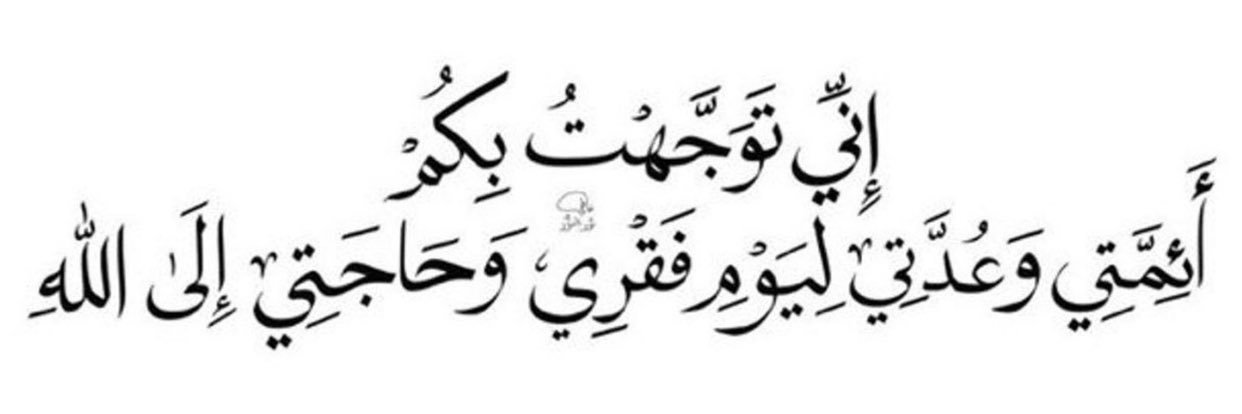 إِنِّي تَوَجَّهْتُ بِكُمْ
أَئِمَّتِي وَعُدَّتِي لِيَوْمِ فَقْرِي وَحَاجَتِي إِلَىٰ اللهِ